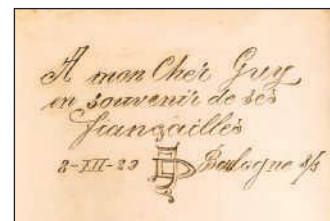 A mon Cher Guy
en souvenir de ses
fiançailles
8-XII-29 Boulogne s/s